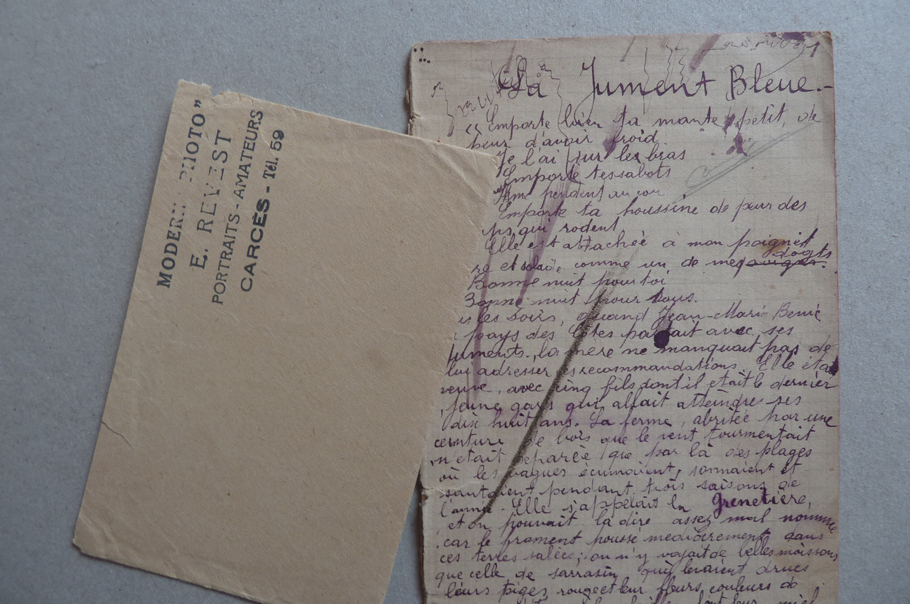 MODERN PHOTO"
E. REVEST
PORTRAITS - AMATEURS
CARCÈS - Tél. 59
1
La Jument Bleue.-
« Emporte bien ta mante, petit, de
peur d'avoir froid
Je l'ai sur les bras
Emporte tes sabots
pendent au cou
Emporte ta houssine de peur des
qui rodent
Elle est attachée à mon poignet
et solide comme un de mes doigts
Bonne nuit pour toi
Bonne nuit pour vous.
les soirs, quand Jean-Marie Benic
pays des Côtes partait avec ses
juments, la mère ne manquait pas de
lui adresser ses recommandations. Elle était
veuve, avec cinq fils dont il était le dernier
jeune gars qui allait atteindre ses
dix huit ans. La ferme, abritée par une
ceinture de bois que le vent tourmentait
n'était séparée que par là des plages
où les vagues écumaient, sonnaient et
sautaient pendant trois saisons de
l'année. Elle s'appelait la Grenetière,
et on pouvait la dire assez mal nommée
car le froment pousse médiocrement dans
ces terres salées; on n'y voyait de belles moissons
que celle de sarrasin, qui levaient drues
leurs tiges rouges et leur fleurs couleurs de
leur miel